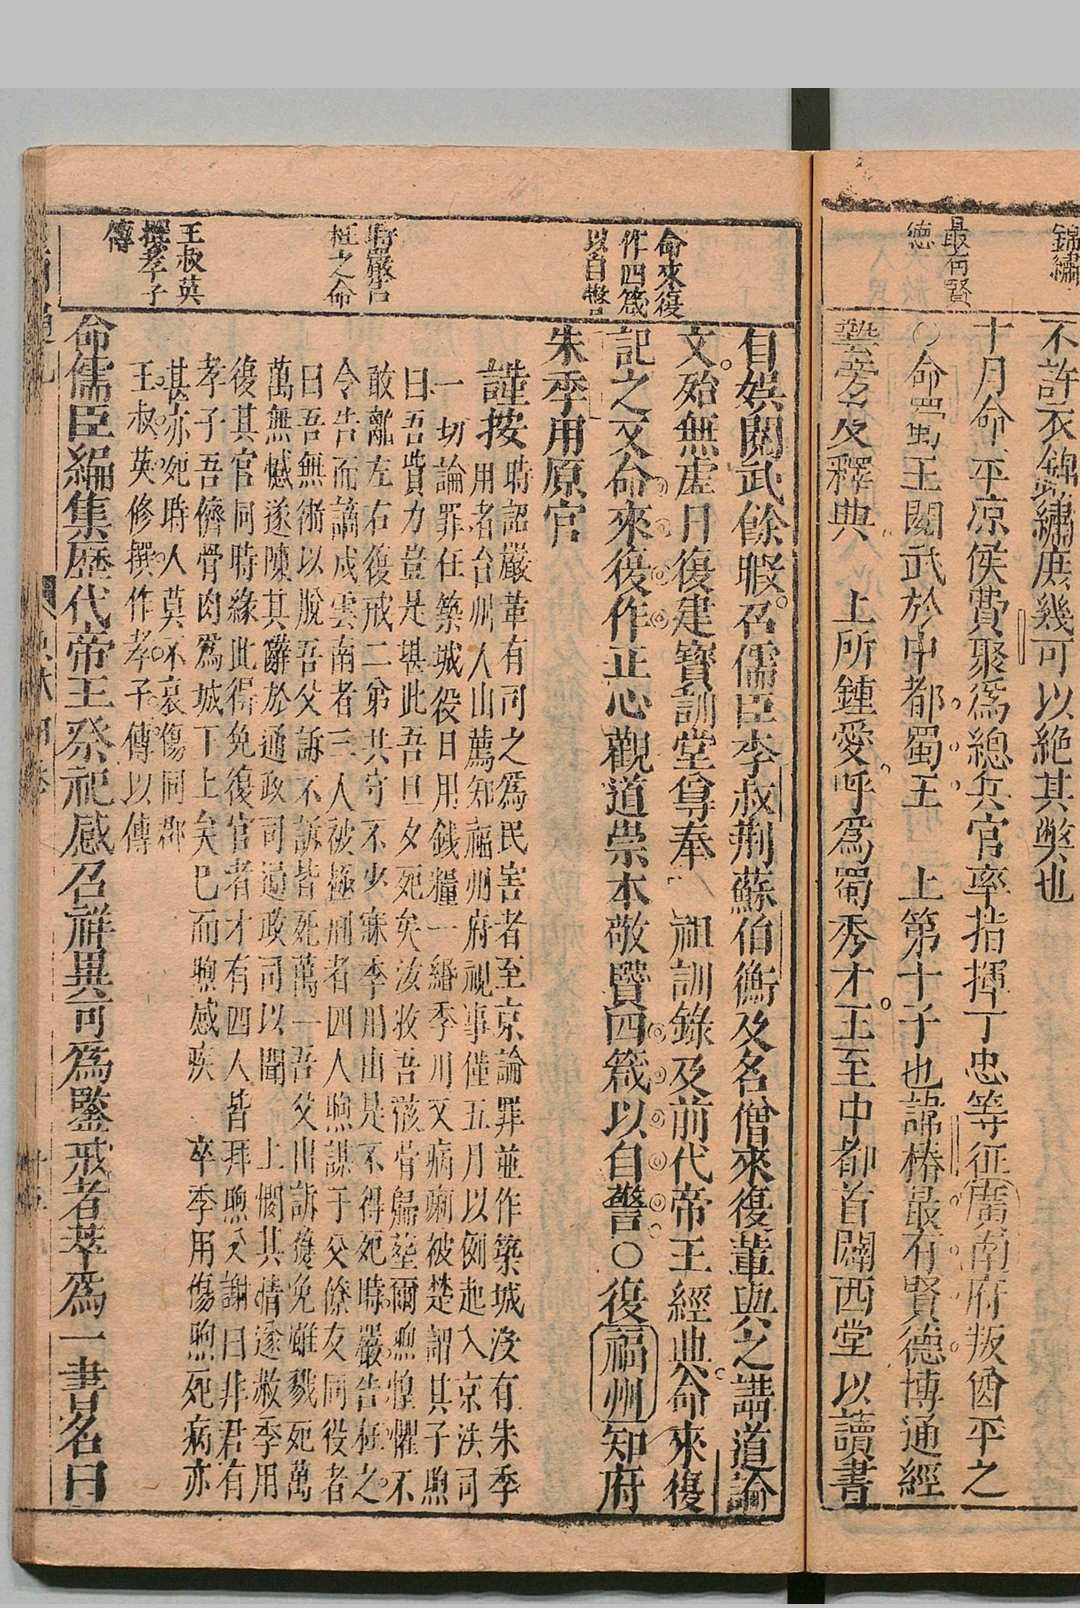 錦繡
最有賢
德
不許衣錦繡庶幾可以絶其弊也
十月命平凉侯費聚爲總兵官率指揮丁忠等征廣南府叛酋平之
○命蜀王閱武於中都蜀王 上第十子也諱椿最有賢德博通經
典 上所鍾愛呼爲蜀秀才王至中都首闢西堂以讀書
命來復
作四箴
以自警
時嚴告
枉之命
王叔英
撰孝子
傳
自娯閱武餘暇召儒臣李叔荆蘇伯衡及名僧來復董典之講道論
文殆無虚日復建寳訓堂尊奉 祖訓錄及前代帝王經典命來復
記之又命來復作正心觀道崇本敬賢四箴以自警○復福州知府
朱季用原官
謹按時詔嚴革有司之爲民害者至京論罪並作築城没有朱季
用者台州人山薦知福州府視事僅五月以例起入京法司
一切論罪在築城役日用錢糧一緡季用又病痢被楚謂其子煦
曰吾貲力豈是堪此吾旦夕死矣汝收吾骸骨歸塟爾煦惶懼不
敢離左右復戒二弟共守不少寐季用山是不得死時嚴告枉之
令告而謫戍雲南者三人被極刑者四人煦謀于父僚友同役者
曰吾無術以脫吾父訴不訴皆死萬一吾父由訴獲免雖戮死萬
萬無憾遂陳其辭於通政司通政司以聞 上憫其情遂赦季用
復其官同時緣此得免復官者才有四人皆拜煦父謝曰非君有
孝子吾儕骨肉爲城丁上矣巳而煦感疾 卒季用傷煦死病亦
甚亦死時人莫不哀傷同郡
王叔英修撰作孝子傳以傳
命儒臣編集歷代帝王祭祀感召祥異可爲鑒戒者萃爲一書名曰